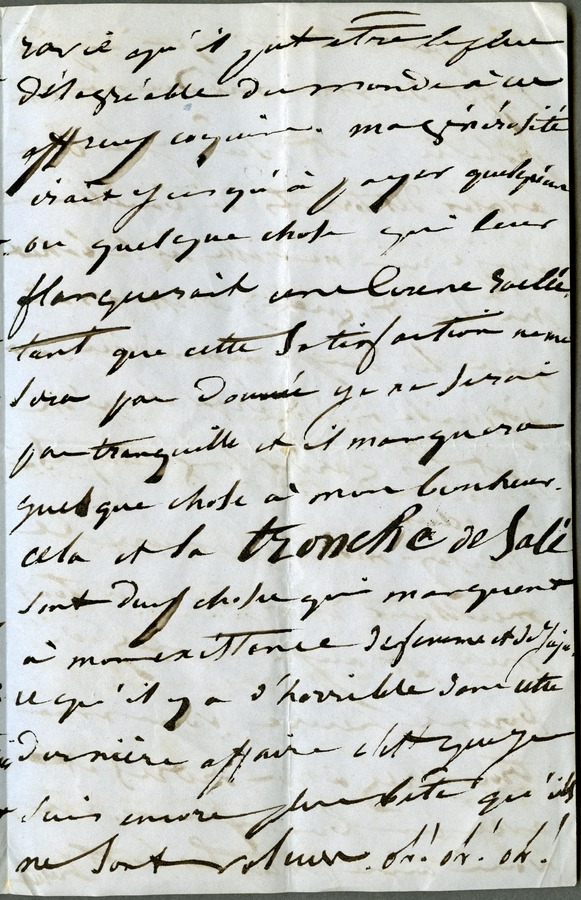 ravie qu'il put etre le plus
désagréable du monde à ces
affreux coquins. ma générosité
irait jusqu'à payer quelqu'un
ou quelque chose qui leur
flanquerait une bonne raclée.
tant que cette satisfaction ne me
sera pas donnée je ne serai
pas tranquille et il manquera
quelque chose à mon bonheur.
cela et la tronche de Salé
sont deux choses qui manquent
à mon existence de femme et de
ce qu'il y a d'horrible dans cette
dernière affaire c'est que je
suis encore plus bête qu'ils
ne sont voleurs. oh! oh! oh!